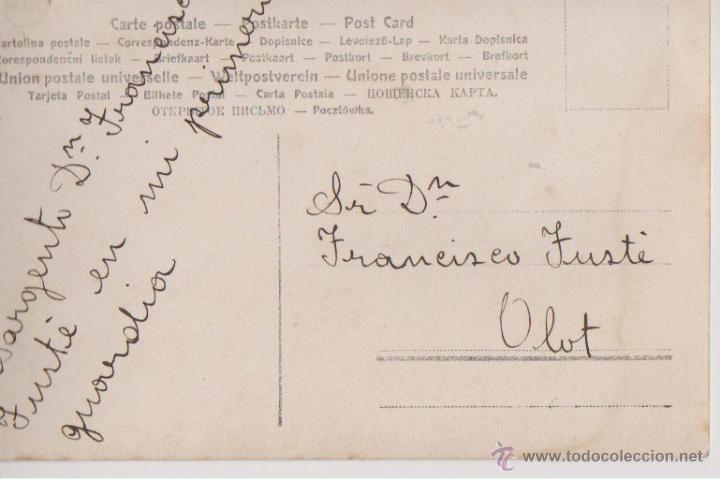 Carte postale — Postkarte — Post Card
Cartolina postale — Correspondenz-Karte — Dopisnice — Levelező-Lap — Karta Dopisnica
Korespondenční lístek — Briefkaart — Postkaart — Postkort — Brevkort — Brefkort
Union postale universelle — Weltpostverein — Unione postale universale
Tarjeta Postal — Bilhete Postal — Carta Postala — ПОЩЕНСКА КАРТА.
ОТКРЫТОЕ ПИСЬМО — Pocztówka.
Sargento Dn. Francisco
Fusté en mi primera
guardia
Sr Dn
Francisco Fusté
Olot
www.todocoleccion.net